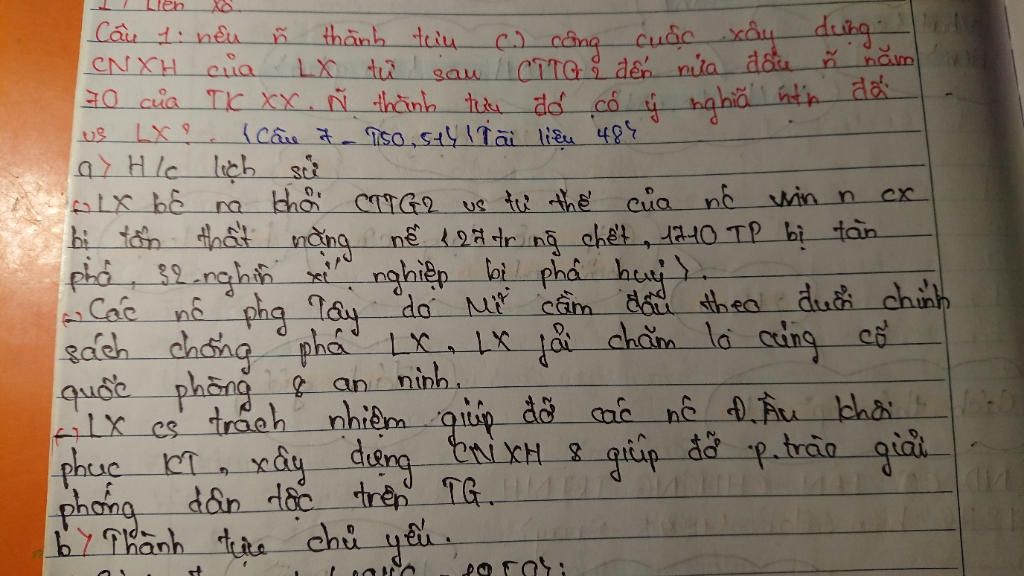 1, Liên Xô
Câu 1: nêu ñ thành tựu (.) công cuộc xây dựng
CNXH của LX từ sau CTTG2 đến nửa đầu ñ năm
70 của TK XX. Ñ thành tựu đó có ý nghĩa ntn đối
vs LX?. (Câu 7 - T50,51) (Tài liệu 48)
a) H/c lịch sử
LX bc ra khỏi CTTG2 vs tư thế của nc win n cx
bị tổn thất nặng nề (27tr ng chết, 1710 TP bị tàn
phá, 32 nghìn xí nghiệp bị phá huỷ).
Các nc phg Tây do Mĩ cầm đầu theo đuổi chính
sách chống phá LX, LX fải chăm lo củng cố
quốc phòng & an ninh.
LX cs trách nhiệm giúp đỡ các nc Đ.Âu khôi
phục KT, xây dựng CNXH & giúp đỡ p.trào giải
phóng dân tộc trên TG.
b) Thành tựu chủ yếu.